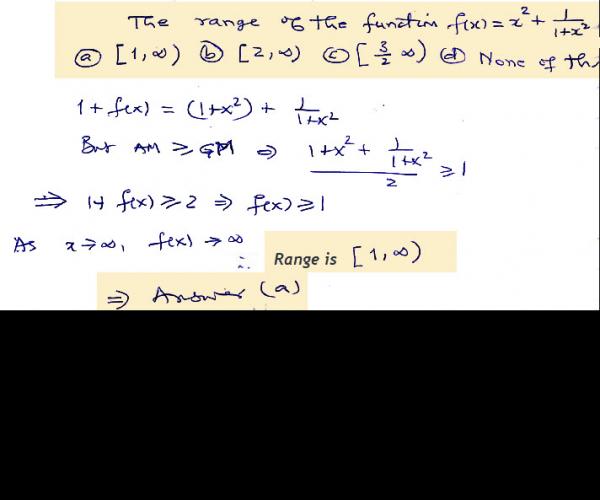 The range of the function f(x) = x² + 1/(1+x²)
(a) [1, ∞) (b) [2, ∞) (c) [3/2 ∞) (d) None of th
1 + f(x) = (1+x²) + 1/(1+x²)
But AM ≥ GM ⇒ (1+x² + 1/(1+x²))/2 ≥ 1
⇒ 1+ f(x) ≥ 2 ⇒ f(x) ≥ 1
As x → ∞, f(x) → ∞
∴ Range is [1, ∞)
⇒ Answer (a)